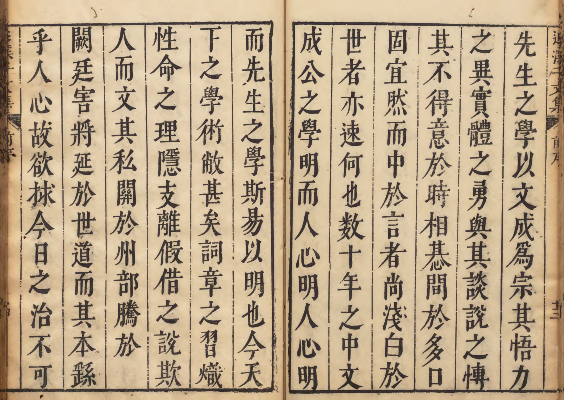 先生之學以文成爲宗其悟力
之異實體之勇與其談說之慱
其不得意於時相惎間於多口
固宜然而中於言者尚淺白於
世者亦速何也数十年之中文
成公之學明而人心明人心明
而先生之學斯易以明也今天
下之學術敝甚矣詞章之習熾
性命之理隱支離假借之說欺
人而文其私關於州部騰於
闕廷害將延於世道而其本繇
乎人心故欲捄今日之治不可